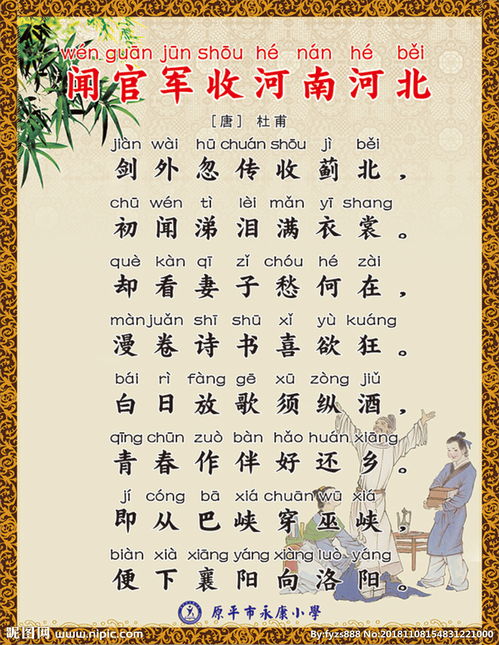 wén guān jūn shōu hé nán hé běi
闻官军收河南河北
［唐］ 杜甫
jiàn wài hū chuán shōu jì běi
剑外忽传收蓟北，
chū wén tì lèi mǎn yī shang
初闻涕泪满衣裳。
què kàn qī zǐ chóu hé zài
却看妻子愁何在，
màn juǎn shī shū xǐ yù kuáng
漫卷诗书喜欲狂。
bái rì fàng gē xū zòng jiǔ
白日放歌须纵酒，
qīng chūn zuò bàn hǎo huán xiāng
青春作伴好还乡。
jí cóng bā xiá chuān wū xiá
即从巴峡穿巫峡，
biàn xià xiāng yáng xiàng luò yáng
便下襄阳向洛阳。
原平市永康小學
昵图网 www.nipic.com By:fyzs888 No:20181108154831221000